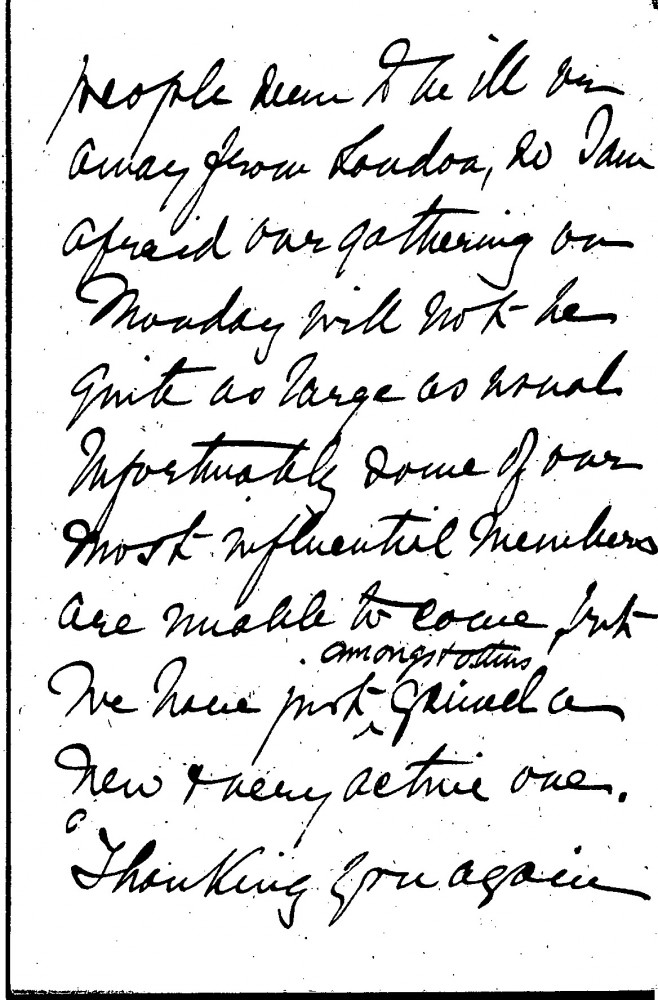 people seem to be ill or
away from London, so I am
afraid our gathering on
Monday will not be
quite as large as usual
Unfortunately some of our
most influential members
are unable to come, but
amongst others
We have just ^ gained a
new & very active one.
Thanking you again